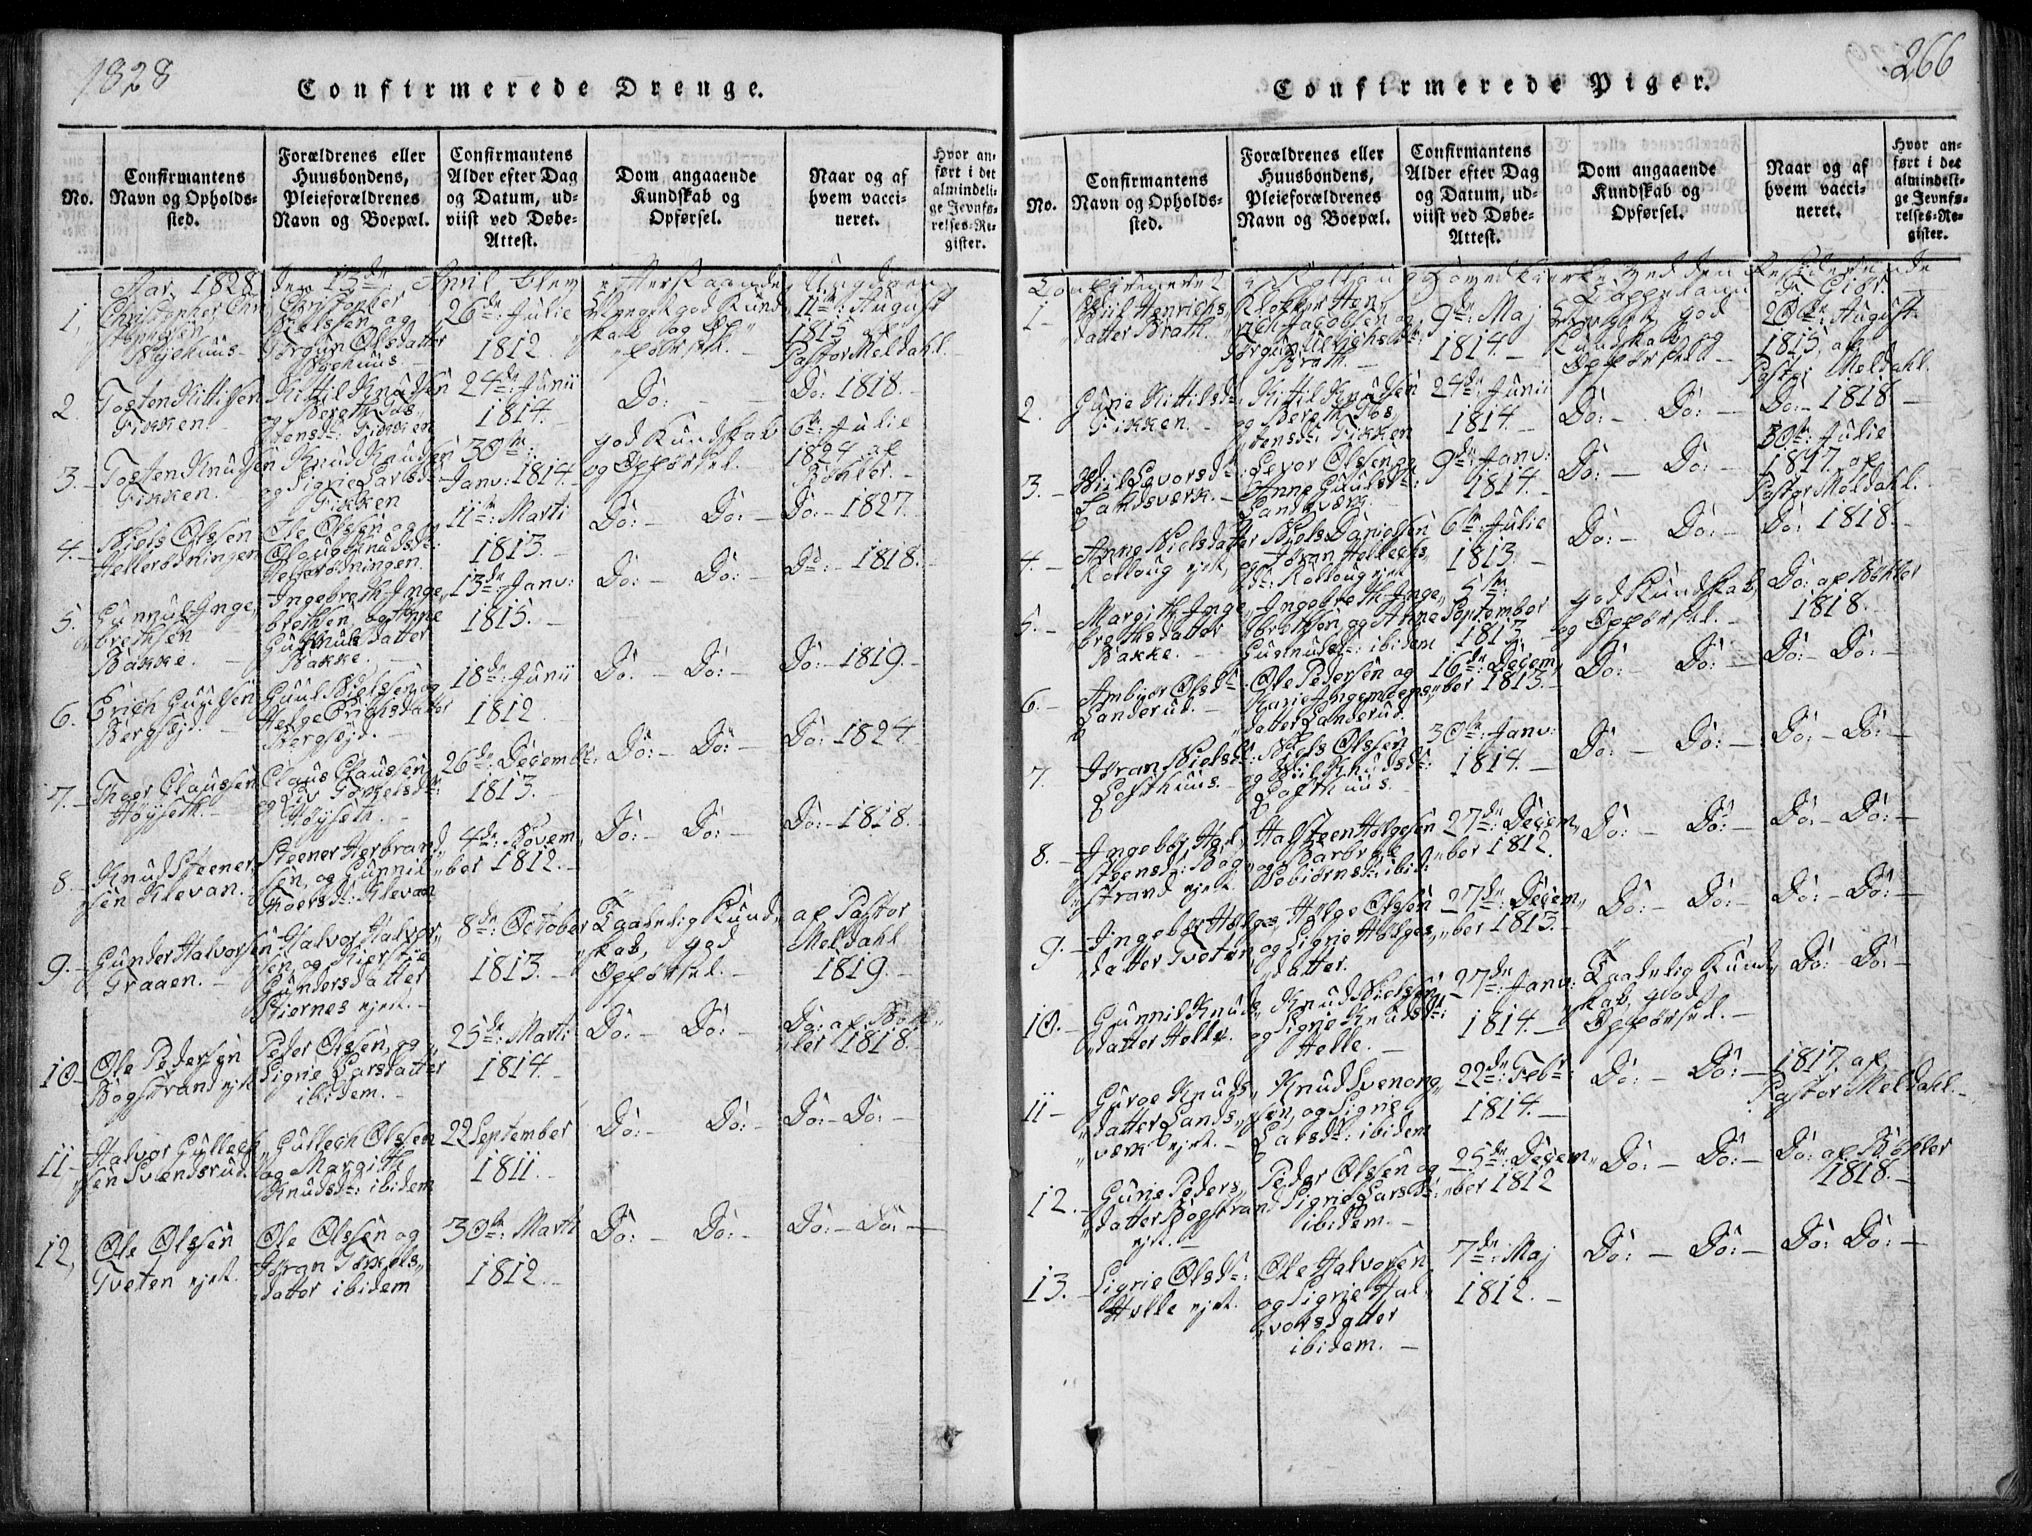 1828
Confirmerede Drenge.
No.
Confirmantens
Navn og Opholds-
sted.
Forældrenes eller
Huusbondens,
Pleieforældrenes
Navn og Boepæl.
Confirmantens
Alder efter Dag
og Datum, ud-
viist ved Døbe-
Attest.
Dom angaaende
Kundskab og
Opførsel.
Naar og af
hvem vacci-
neret.
Hvor an-
ført i det
almindeli-
ge Jevnfø-
relses-Re-
gister.
Aar 1828 den 13de April blev efterstaaende Ungdom
1,
Christopher Chri
stophersen
Christopher
Nielssen og
Torgun Olsdatter
26de Julie
1812
Meget god Kund
skab og Op
førsel. –
11te August
1815 af
Pastor Meldahl.
2.
Tosten Kittilsen
Fikken. –
Kittil Knudsen
og Bereth Tos
tensdr: Fikken
24de Junii
1814. –
Do: –
Do: 1818. –
3. –
Tosten Knudsen
Fikken. –
Knud Knudsen
og Sigrie Larsdr
Fikken
30te
Janv: 1814. –
god Kundskab
og Opførsel. –
6te Julie
1824 af
Bøhler. –
4. –
Niels Olssen
Hellerødningen
Ole Olssen og
Knudsdr:
Hellerødningen.
11te Marti
1813. –
Do: – Do: –
Do: – 1827. –
5. –
Gunnul Inge„
brethsen
Bakke. –
Ingebreth Inge„
brethsen og Anne
Gunnulsdatter
Bakke. –
13de Janv:
1815. –
Do: – Do: –
Do: – 1818. –
6. –
Erich Guulsen
Bergsejd. –
Guul Nielssen og
Helge Erichsdatter
Bergsejd. –
18de Junii
1812
Do: – Do: –
Do: – 1819. –
7. –
Thoer Claussen
Høyseth. –
Claus Claussen
og Liv Torkelsdr:
Høyseth. –
26de Decembr:
1813. –
Do: – Do: –
Do: 1824
8. –
Knud Steener„
sen Klevan. –
Steener Herbrand„
sen, og Gunnil
Thoersdr: Klevan
4de Novem„
ber 1812. –
Do: – Do: –
Do: – 1818. –
9. –
Gunder Halvorsen
Traaen. –
Halvor Halvor„
sen, og Kierstie
Gundersdatter
Stiernes ejet. –
8de October
1813. –
Taalelig Kund„
skab, god
Opførsel. –
af Pastor
Meldahl
1819. –
10. –
Ole Pedersen
Bogstrand ejet
Peder Olssen, og
Sigrie Larsdatter
ibidem. –
25de Marti
1814. –
Do: – Do: –
Do: af Bøh„
ler 1818. –
11 –
Halvor Gullech„
sen Svendsrud.
Gullech Olssen
og Margith
Knudsdr: ibidem
22 September
1811. –
Do: – Do: –
Do: – Do: –
12,
Ole Olssen
Tveten ejet.
Ole Olssen og
Jøran Torkels„
datter ibidem
30te Marti
1812. –
Do: – Do: –
Do: – Do: –
266
Confirmerede Piger.
No.
Confirmantens
Navn og Opholds-
sted.
Forældrenes eller
Huusbondens,
Pleieforældrenes
Navn og Boepæl.
Confirmantens
Alder efter Dag
og Datum, ud-
viist ved Døbe-
Attest.
Dom angaaende
Kundskab og
Opførsel.
Naar og af
hvem vacci-
neret.
Hvor an-
ført i det
almindeli-
ge Jevnfø-
relses-Re-
gister.
Confirmeret i Rollaug Hovedkirke ved den Residerende
Cappelan
1 –
Henrichs
datter Brath.
Klokker Hen„
rich Jacobsen og
Brath. –
9de Maj
1814. –
Meget god
Kundskab og
Opførsel
20de August
1815 af
Pastor Meldahl.
2.
Gurie Kittilsdr:
Fikken. –
Kittil Knudsen
og Bereth Tos„
tensdr: Fikken
24de Junii
1814. –
Do: – Do: –
Do: – 1818 –
3. –
Levorsdr:
Landsverk. –
Levor Olssen og
Anne Guulsdr:
Landsverk
9de Janv:
1814. –
Do: – Do: –
30te Julie
1817. af
Pastor Meldahl. –
4. –
Anne Nielsdatter
Rolloug ejet,
Niels Danielsen
og Jøran Hellechs„
dr: Rolloug ejet
6te Julie
1813. –
Do: – Do: –
Do: 1818. –
5. –
Margith Inge„
brethsdatter
Bakke. –
Ingebreth Inge„
brethsen, og Anne
Gunnulsdr: ibidem
5te
September
1813. –
god Kundskab,
og Opførsel. –
Do: af Bøhler
1818. –
6. –
Ambjør Olsdr
Landerud. –
Ole Pedersen og
Karie Ingebrethens„
datter Landerud.
16de Decem„
ber 1813. –
Do: – Do: –
Do: – Do: –
7.
Jøran Nielsdr:
Losthuus. –
Niels Olssen
og Knudsdr:
Losthuus. –
30te Janv:
1814. –
Do: – Do: –
Do: – Do: –
8. –
Ingebør Hal„
steensdr: Bog„
strand ejet.
Halsteen Helgesen
og Barbroe
Vebiørnsdr: ibid:
27de Decem„
ber 1812.
Do: – Do: –
Do: – Do: –
9. –
Ingebør Helges„
datter Tveten
Helge Olssen
og Sigrie Helges„
datter.
27de Decem„
ber 1813. –
Do: – Do: –
Do: – Do: –
10. –
Gunnil Knuds„
datter Helle.
Knud Nielssen
og Sigrie Knudsdr:
Helle. –
27de Janv:
1814. –
Taalelig Kund„
skab, god
Opførsel. –
Do: – Do: –
11 –
Guroe Knuds„
datter Lands„
verk ejet. –
Knud Svenong„
sen, og Sigrie
Larsdr: ibidem
22de Febr:
1814. –
Do: – Do: –
1817. af
Pastor Meldahl. –
12. –
Gurie Peders„
datter Bogstrand
ejet. –
Peder Olssen og
Sigrie Larsdr:
ibidem. –
25de Decem„
ber 1812
Do: – Do: –
Do: af Bøhler
1818. –
13. –
Sigrie Olsdr:
Helle ejet.
Ole Halvorsen
og Sigrie Hal„
vorsdatter
ibidem. –
7de Maj
1812. –
Do: – Do: –
Do: Do: –